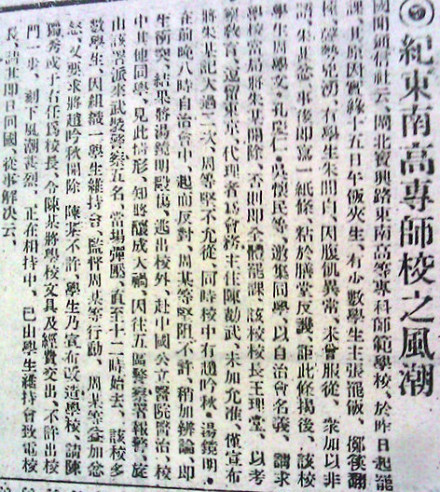 紀東南高專師校之風潮
國聞通信社云、閘北寶興路東南高等專科師範學校、於昨日起罷
課、其原因實緣十五日午飯夾生、有少數學生主張罷飯、擲筷翻
椀、聲勢兇湧、有學生朱開白、因腹飢異常、未曾服從、衆加以非
謂、朱甚忿、事後即寫一紙條、粘於膳堂反譏、詎此條揭後、該校
學生周學文・孔慶仁・吳懷民等、邀集同學・以自治會名義、請求
學校當局將朱某開除、否則即全體罷課、該校校長王理堂、以考
察教育、逗留東京、代理者爲會務主任陳勣武、未加允准、僅宣布
將朱某記大過二次、周等堅不允從、同時校中有趙吟秋・湯鏡明・
在前晚八時自治會中、起而反對、周某等堅阻不許、稍加辨論、即
生衝突、結果將湯鏡明毆傷、逃出校外、赴中國公立醫院醫治、校
中其他同學、見此情形、知將釀成大禍、因往五區警察署報警、旋
由該署派來武裝警察五名、當場彈壓、直至十二時始去、該校多
數學生、因組織一學生維持會、監督周某等行動、周某等益加忿
怒、又要求將趙吟秋開除、陳某不許、學生乃宣布改造學校、請陳
獨秀或于右任爲校長、令陳某將學校文具及經費交出、不許出校
門一步、刻下風潮甚烈、正在相持中、已由學生維持會致電校
長、請其即日回國、從事解決云、